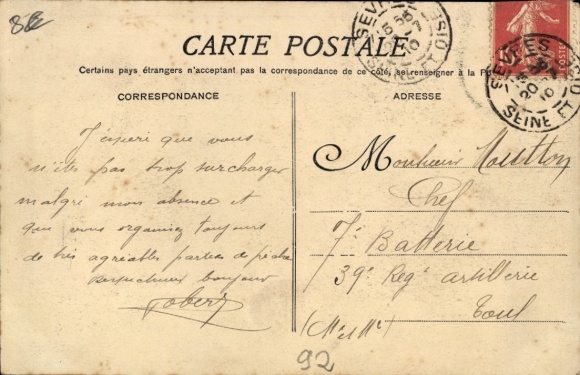 8€
CARTE POSTALE
Certains pays étrangers n'acceptant pas la correspondance de ce coté, se renseigner à la Po
CORRESPONDANCE
J'espère que vous
n'êtes pas trop surchargé
malgré mon absence et
que vous organisez toujours
de très agréables parties de pêche
respectueux bonjour
Robert
ADRESSE
Monsieur Moutton
Chef
7e Batterie
39e Regt artillerie
Toul
(Mt et Mle)
92
SEVRES
SEINE ET OISE
SEVRES
SEINE ET OISE